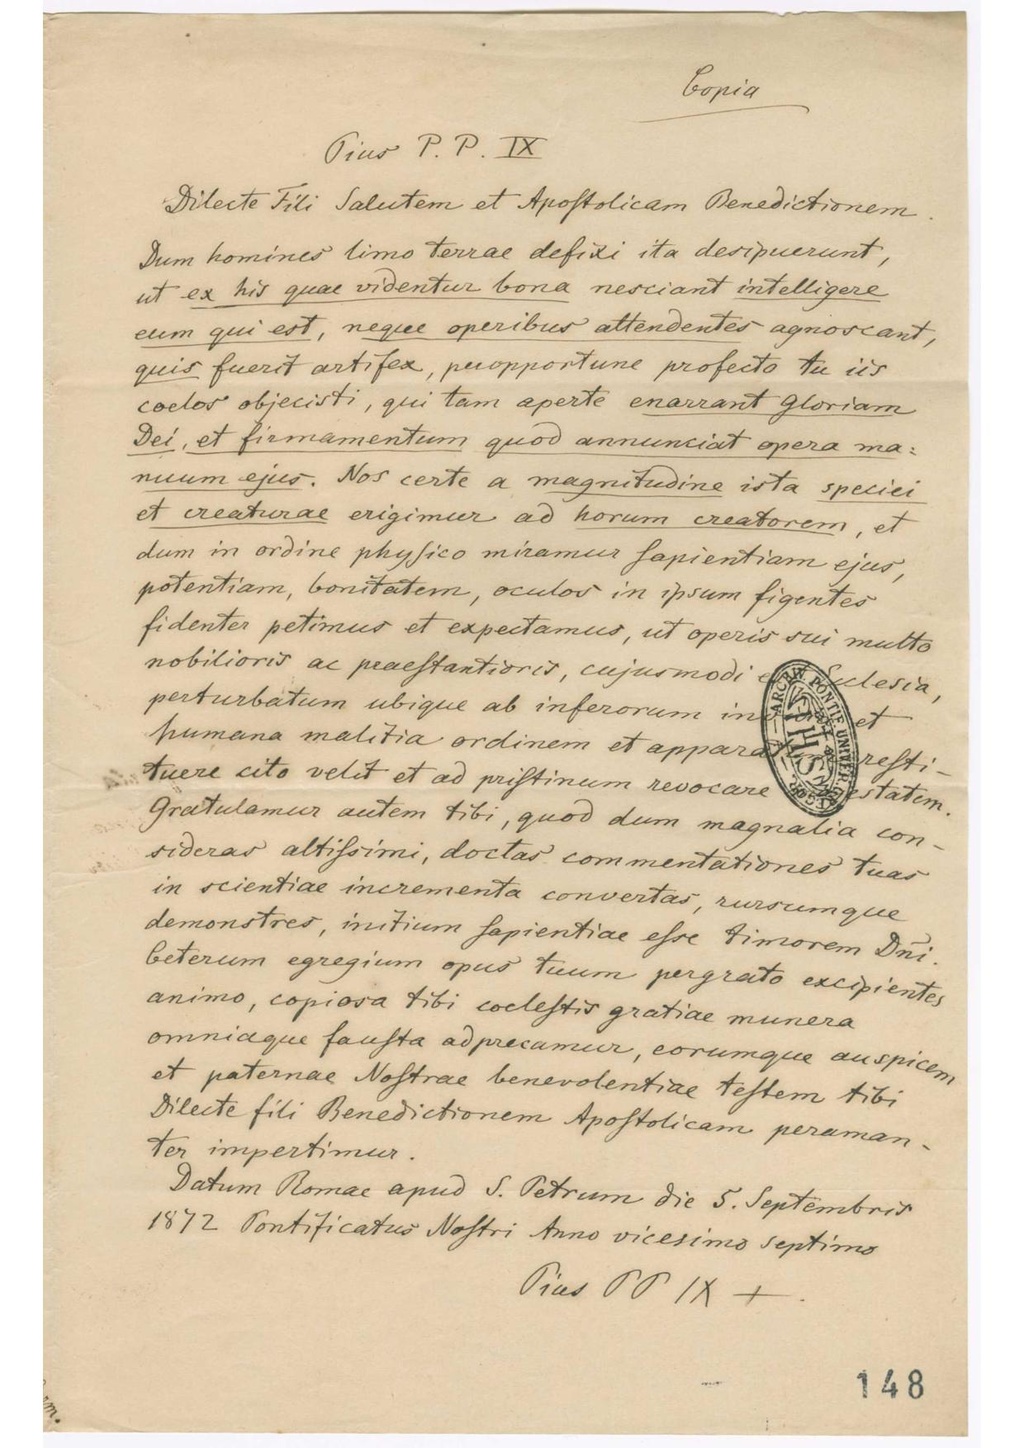 Copia
Pius P. P. IX
Dilecte Fili Salutem et Apostolicam Benedictionem.
Dum homines limo terrae defixi ita desipuerunt,
ut ex his quae videntur bona nesciant intelligere
eum qui est, neque operibus attendentes agnoscant,
quis fuerit artifex, peropportune profecto tu iis
coelos objecisti, qui tam aperte enarrant gloriam
Dei, et firmamentum quod annunciat opera ma:
nuum ejus. Nos certe a magnitudine ista speciei
et creaturae erigimur ad horum creatorem, et
dum in ordine physico miramur sapientiam ejus,
potentiam, bonitatem, oculos in ipsum figentes
fidenter petimus et expectamus, ut operis sui multo
nobilioris ac praestantioris, cujusmodi clesia,
perturbatum ubique ab inferorum et
humana malitia ordinem et resti-
tuere cito velit et ad pristinum revocare estatem.
Gratulamur autem tibi, quod dum magnalia con-
sideras altissimi, doctas commentationes tuas
in scientiae incrementa convertas, rursumque
demonstres, initium sapientiae esse timorem Dni.
Ceterum egregium opus tuum pergrato excipientes
animo, copiosa tibi coelestis gratiae munera
omniaque fausta adprecamur, eorumque auspicem
et paternae Nostrae benevolentiae testem tibi
Dilecte fili Benedictionem Apostolicam peraman-
ter impertimur.
Datum Romae apud S. Petrum die 5. Septembris
1872 Pontificatus Nostri Anno vicesimo septimo
Pius PP IX +.
ARCHIV. PONTIF. UNIVER. GREGOR.
IHS
148